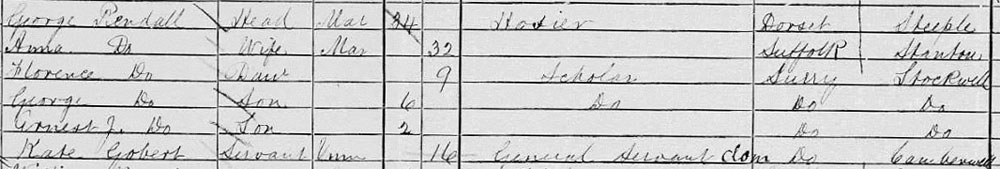 George Rendall Head Mar 34 Hosier Dorset Steeple
Anna Do Wife Mar 32 Suffolk Stanton
Florence Do Daur 9 Scholar Surry Stockwell
George Do Son 6 Do Do Do
Ernest J. Do Son 2 Do Do
Kate Gobert Servant Unm 16 General Servant dom Do Camberwell